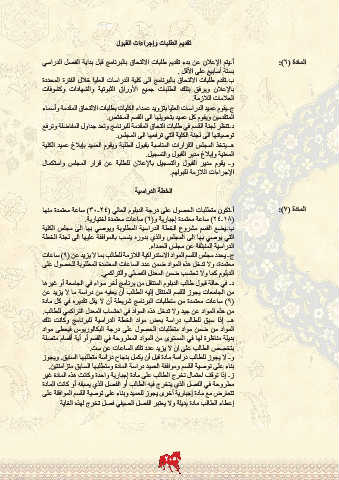 تقديم الطلبات وإجراءات القبول
المادة (٦): أ.يتم الإعلان عن بدء تقديم طلبات الالتحاق بالبرنامج قبل بداية الفصل الدراسي
بستة أسابيع على الأقل.
ب.تقدم طلبات الالتحاق بالبرنامج الى كلية الدراسات العليا خلال الفترة المحددة
بالإعلان ويرفق بتلك الطلبات جميع الأوراق الثبوتية والشهادات وكشوفات
العلامات اللازمة.
ج.يقوم عميد الدراسات العليا بتزويد عمداء الكليات بطلبات الالتحاق المقدمة وأسماء
المتقدمين ويقوم كل عميد بتحويلها الى القسم المختص.
د.تنظر لجنة القسم في طلبات التحاق المقدمة للبرنامج وتعد جداول المفاضلة وترفع
توصياتها الى لجنة الكلية التي ترفعها الى المجلس.
هـ.يتخذ المجلس القرارات المناسبة بقبول الطلبة ويقوم العميد بإبلاغ عميد الكلية
المعنية وإبلاغ مدير القبول والتسجيل.
و. يقوم مدير القبول والتسجيل بالإعلان للطلبة عن قرار المجلس واستكمال
الإجراءات اللازمة لقبولهم.
الخطة الدراسية
المادة (٧): أ.تكون متطلبات الحصول على درجة الدبلوم العالي (٢٤-٣٠) ساعة معتمدة منها
(١٨-٢٤) ساعة معتمدة إجبارية و(٦) ساعات معتمدة اختيارية.
ب.يضع القسم مشروع الخطة الدراسية المطلوبة ويوصي بها الى مجلس الكلية
الذي يوصي بها الى المجلس والذي بدوره ينسب بالموافقة عليها الى لجنة الخطة
الدراسية المنبثقة عن مجلس العمداء.
ج.يحدد مجلس القسم المواد الاستدراكية اللازمة للطالب بما لا يزيد عن (٩) ساعات
معتمدة، و لا تدخل هذه المواد ضمن عدد الساعات المعتمدة المطلوبة للحصول على
الدبلوم كما ولا تحتسب ضمن المعدل الفصلي والتراكمي.
د. في حالة قبول طالب الدبلوم المنتقل من برنامج آخر سواء في الجامعة أو غيرها
من الجامعات يجوز للقسم المنتقل إليه الطالب أن يعفيه من دراسة ما لا يزيد عن
(٩) ساعات معتمدة من متطلبات البرنامج شريطة أن لا يقل تقديره في كل مادة
من هذه المواد عن جيد ولا تدخل هذه المواد في احتساب المعدل التراكمي للطالب.
هـ. إذا سبق للطالب دراسة بعض مواد الخطة الدراسية للبرنامج وكانت تلك
المواد من ضمن مواد متطلبات الحصول على درجة البكالوريوس فيعطى مواد
بديلة مناظرة لها في المستوى من المواد المطروحة في القسم أو أية أقسام متصلة
بتخصص الطالب على أن لا يزيد عدد تلك الساعات عن ست.
و. لا يجوز للطالب دراسة مادة قبل أن يكمل بنجاح دراسة متطلبها السابق. ويجوز
بناء على توصية القسم وموافقة العميد دراسة المادة ومتطلبها السابق متزامنتين.
ز. إذا توقف احتمال تخرج الطالب على مادة إجبارية واحدة وكانت هذه المادة غير
مطروحة في الفصل الذي يتخرج فيه الطالب أو الفصل الذي يسبقه أو كانت المادة
تتعارض مع مادة إجبارية أخرى يجوز للعميد وبناء على توصية القسم الموافقة على
إعطاء الطالب مادة بديلة ولا يعتبر الفصل الصيفي فصل تخرج لهذه الغاية.